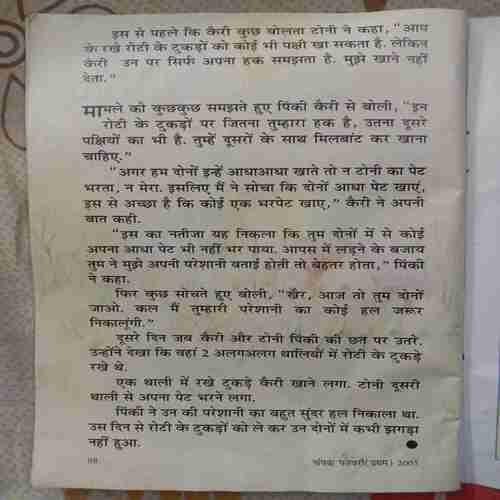 इस से पहले कि कैरी कुछ बोलता टोनी ने कहा, “आप
के रखे रोटी के टुकड़ों को कोई भी पक्षी खा सकता है. लेकिन
कैरी उन पर सिर्फ अपना हक समझता है. मुझे खाने नहीं
देता.”
मामले को कुछकुछ समझते हुए पिंकी कैरी से बोली, “इन
रोटी के टुकड़ों पर जितना तुम्हारा हक है, उतना दूसरे
पक्षियों का भी है. तुम्हें दूसरों के साथ मिलबांट कर खाना
चाहिए.”
“अगर हम दोनों इन्हें आधाआधा खाते तो न टोनी का पेट
भरता, न मेरा. इसलिए मैं ने सोचा कि दोनों आधा पेट खाएं,
इस से अच्छा है कि कोई एक भरपेट खाए,” कैरी ने अपनी
बात कही.
“इस का नतीजा यह निकला कि तुम दोनों में से कोई
अपना आधा पेट भी नहीं भर पाया. आपस में लड़ने के बजाय
तुम ने मुझे अपनी परेशानी बताई होती तो बेहतर होता,” पिंकी
ने कहा.
फिर कुछ सोचते हुए बोली, “खैर, आज तो तुम दोनों
जाओ. कल मैं तुम्हारी परेशानी का कोई हल जरूर
निकालूंगी.”
दूसरे दिन जब कैरी और टोनी पिंकी की छत पर उतरे.
उन्होंने देखा कि वहां 2 अलगअलग थालियों में रोटी के टुकड़े
रखे थे.
एक थाली में रखे टुकड़े कैरी खाने लगा. टोनी दूसरी
थाली से अपना पेट भरने लगा.
पिंकी ने उन की परेशानी का बहुत सुंदर हल निकाला था.
उस दिन से रोटी के टुकड़ों को ले कर उन दोनों में कभी झगड़ा
नहीं हुआ.
चंपक फरवरी (प्रथम) 2005